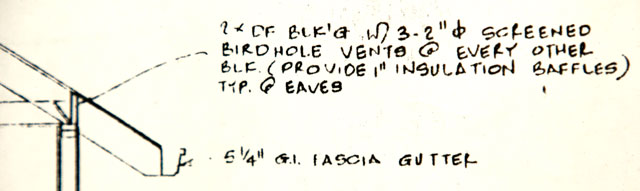 2x DF BLK'G W/ 3-2"ϕ SCREENED
BIRDHOLE VENTS @ EVERY OTHER
BLK. (PROVIDE 1" INSULATION BAFFLES)
TYP. @ EAVES
5 1/4" G.I. FASCIA GUTTER